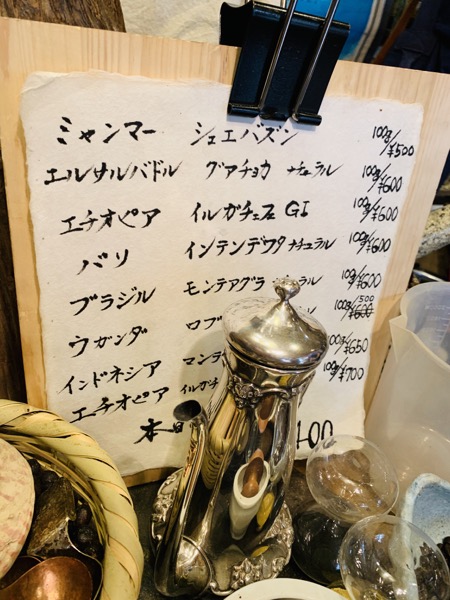 ミャンマー シュエバズン 100g/¥500
エルサルバドル グアチョカ ナチュラル 100g/¥600
エチオピア イルガチェフェ G1 100g/¥600
バリ インテンデワタ ナチュラル 100g/¥600
ブラジル モンテアグラ ラル 100g/¥600
ウガンダ ロブ 100g/500 ¥600
インドネシア マンデ 100g/¥650
エチオピア イルガチ 100g/¥700
本日 400